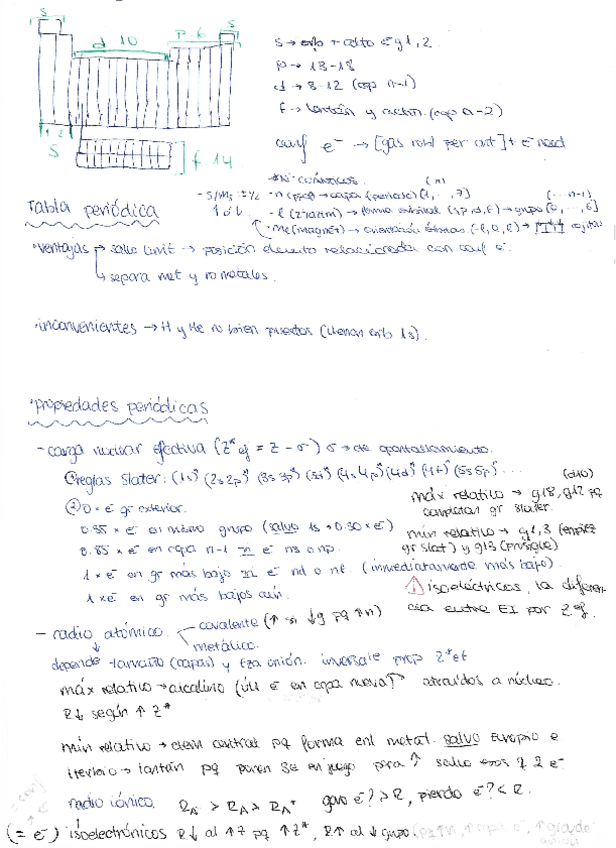 s
s
d 10
p 6
s → orb + alto e⁻ g1, 2.
p → 13-18
d → 3-12 (cap n-1)
f → lantán y actín. (cap n-2)
conf e⁻ → [gas nobl per ant] + e⁻ need
1 2
S
f 14
Tabla periódica
nº cuánticos.
- S/ms ± 1/2
- n (ppal) → capa (periodo) (1, ..., 7)
- l (azim) → forma orbital (s, p, d, f) → grupo (0, ..., 6) (... n-1)
- ml (magnét) → orientación (-l, 0, l) → cajitas
·ventajas → salvo lantí → posición elemento relacionada con conf e⁻.
↳ separa met y no metales.
·inconvenientes → H y He no bien puestos (llenan orb 1s).
·propiedades periódicas
- carga nuclear efectiva (Z*ef = Z - σ) σ → cte apantallamiento.
① reglas Slater: (1s) (2s 2p) (3s 3p) (3d) (4s 4p) (4d) (4f) (5s 5p) ...
② 0 × e⁻ gr exterior.
0.35 × e⁻ al mismo grupo (salvo 1s → 0.30 × e⁻)
0.85 × e⁻ en capa n-1 si e⁻ ns o np.
1 × e⁻ en gr más bajo si e⁻ nd o nf. (inmediatamente más bajo).
1 × e⁻ en gr más bajos aún.
máx relativo → g18, g12 pq (d10)
completan gr Slater.
mín relativo → g1, 3 (empiez
gr slat) y g13 (prisigue)
⚠ isoeléctricos, la diferen-
cia entre EI por Z*ef.
- radio atómico. covalente (↑ si ↓g pq ↑n)
metálico.
depende tamaño (capas) y fza unión. inversate prop Z*ef
máx relativo → alcalino (últ e⁻ en capa nueva) atraídos a núcleo.
R↓ según ↑Z*
mín relativo → elem central pq forma enl metal. salvo Europio e
Iterbio → lantán pq ponen 3e⁻ en juego para ↑ salvo esos q 2 e⁻
radio iónico. R A⁻ > R A > R A⁺ gano e⁻? > R, pierdo e⁻? < R.
(= e⁻) isoelectrónicos R↓ al ↑Z pq ↑Z*, R↑ al ↓grupo